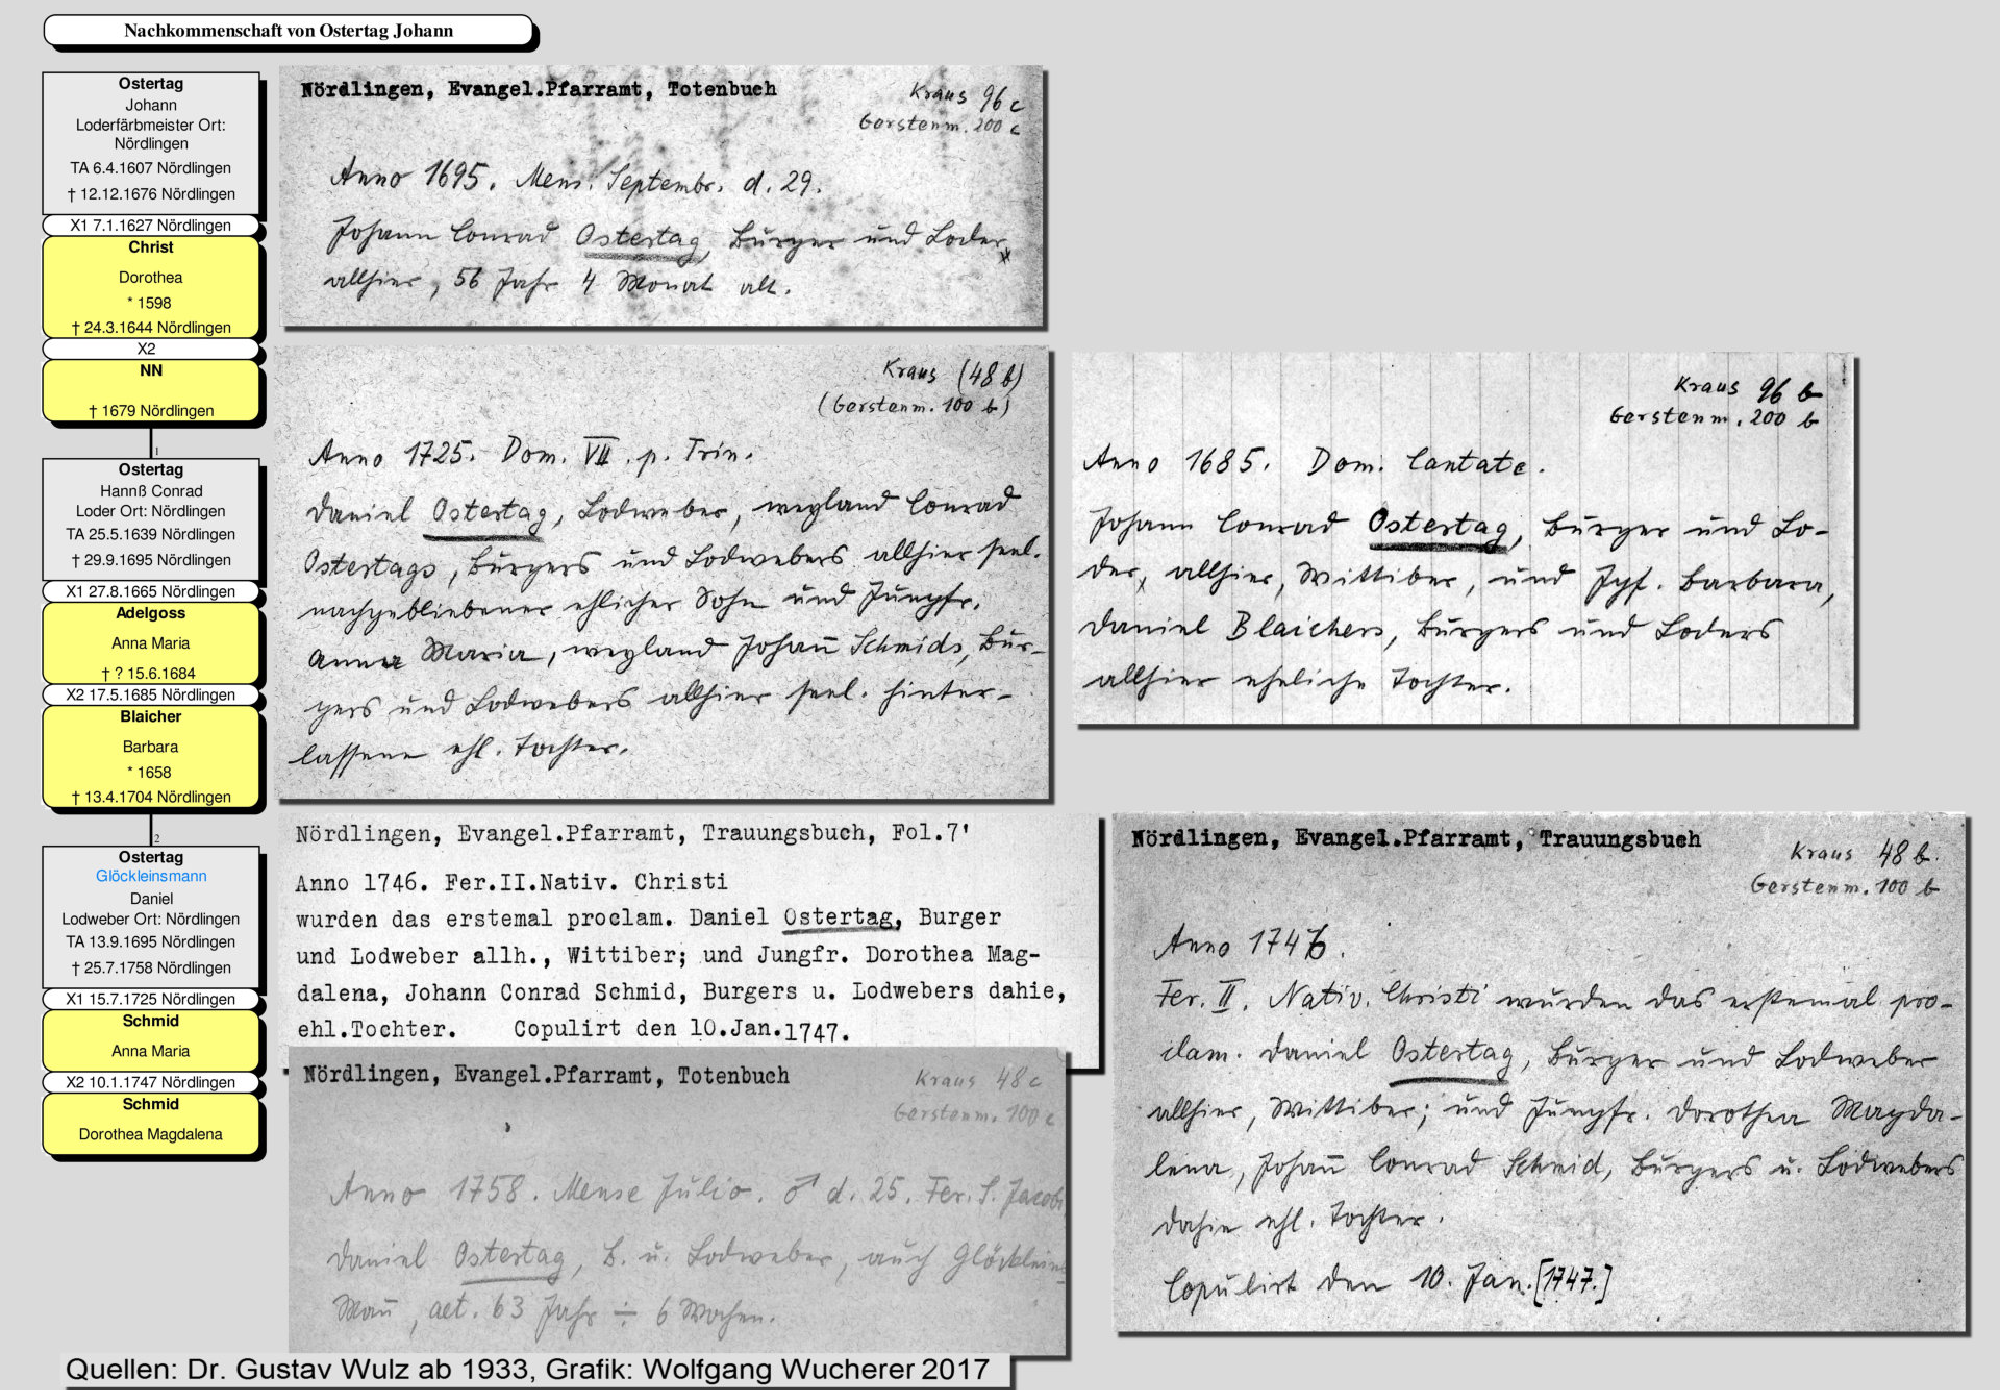 Nachkommenschaft von Ostertag Johann
Ostertag
Johann
Loderfärbmeister Ort:
Nördlingen
TA 6.4.1607 Nördlingen
† 12.12.1676 Nördlingen
X1 7.1.1627 Nördlingen
Christ
Dorothea
* 1598
† 24.3.1644 Nördlingen
X2
NN
† 1679 Nördlingen
1
Ostertag
Hannß Conrad
Loder Ort: Nördlingen
TA 25.5.1639 Nördlingen
† 29.9.1695 Nördlingen
X1 27.8.1665 Nördlingen
Adelgoss
Anna Maria
† ? 15.6.1684
X2 17.5.1685 Nördlingen
Blaicher
Barbara
* 1658
† 13.4.1704 Nördlingen
2
Ostertag
Glöckleinsmann
Daniel
Lodweber Ort: Nördlingen
TA 13.9.1695 Nördlingen
† 25.7.1758 Nördlingen
X1 15.7.1725 Nördlingen
Schmid
Anna Maria
X2 10.1.1747 Nördlingen
Schmid
Dorothea Magdalena
Nördlingen, Evangel.Pfarramt, Totenbuch
Kraus 96 c
Gerstenm. 200 c
Anno 1695. Mens. Septembr. d. 29.
Johann Conrad Ostertag, Burger und Loder
allhier, 56 Jahr 4 Monat alt.
Kraus (48 b)
(Gerstenm. 100 b)
Anno 1725. Dom. VII. p. Trin.
Daniel Ostertag, Lodweber, weyland Conrad
Ostertags, Burgers und Lodwebers allhier seel.
nachgebliebener ehlicher Sohn und Jungfr.
Anna Maria, weyland Johan̄ Schmids, Bur-
gers und Lodwebers allhier seel. hinter-
lassene ehl. Tochter.
Kraus 96 b
Gerstenm. 200 b
Anno 1685. Dom. Cantate.
Johann Conrad Ostertag, Burger und Lo-
der, allhier, Wittiber, und Jgf. Barbara,
Daniel Blaichers, Burgers und Loders
allhier eheliche Tochter.
Nördlingen, Evangel.Pfarramt, Trauungsbuch, Fol.7'
Anno 1746. Fer.II.Nativ. Christi
wurden das erstemal proclam. Daniel Ostertag, Burger
und Lodweber allh., Wittiber; und Jungfr. Dorothea Mag-
dalena, Johann Conrad Schmid, Burgers u. Lodwebers dahie,
ehl.Tochter. Copulirt den 10.Jan.1747.
Nördlingen, Evangel.Pfarramt, Trauungsbuch
Kraus 48 b.
Gerstenm. 100 b
Anno 1746.
Fer. II. Nativ. Christi wurden das erstemal pro-
clam. Daniel Ostertag, Burger und Lodweber
allhier, Wittiber; und Jungfr. Dorothea Magda-
lena, Johan̄ Conrad Schmid, Burgers u. Lodwebers
dahie ehl. Tochter.
Copulirt den 10. Jan. [1747.]
Nördlingen, Evangel.Pfarramt, Totenbuch
Kraus 48 c
Gerstenm. 100 c
Anno 1758. Mense Julio. ♂ d. 25. Fer. S. Jacobi
Daniel Ostertag, B. u. Lodweber, auch Glöcklein-
Man̄, aet. 63 Jahr ÷ 6 Wochen.
Quellen: Dr. Gustav Wulz ab 1933, Grafik: Wolfgang Wucherer 2017